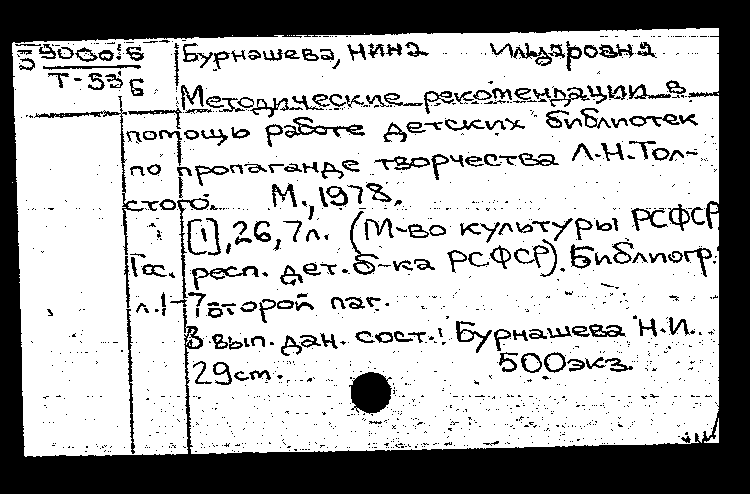 Бурнашева, Нина Ильдаровна
Т-53 Б
Методические рекомендации в
помощь работе детских библиотек
по пропаганде творчества Л.Н.Тол-
стого. М., 1978.
[1], 26, 7л. (М-во культуры РСФСР
Гос. респ. дет. б-ка РСФСР). Библиогр.:
л.1-7 второй паг.
В вып. дан. сост.: Бурнашева Н.И.
29см. 500экз.